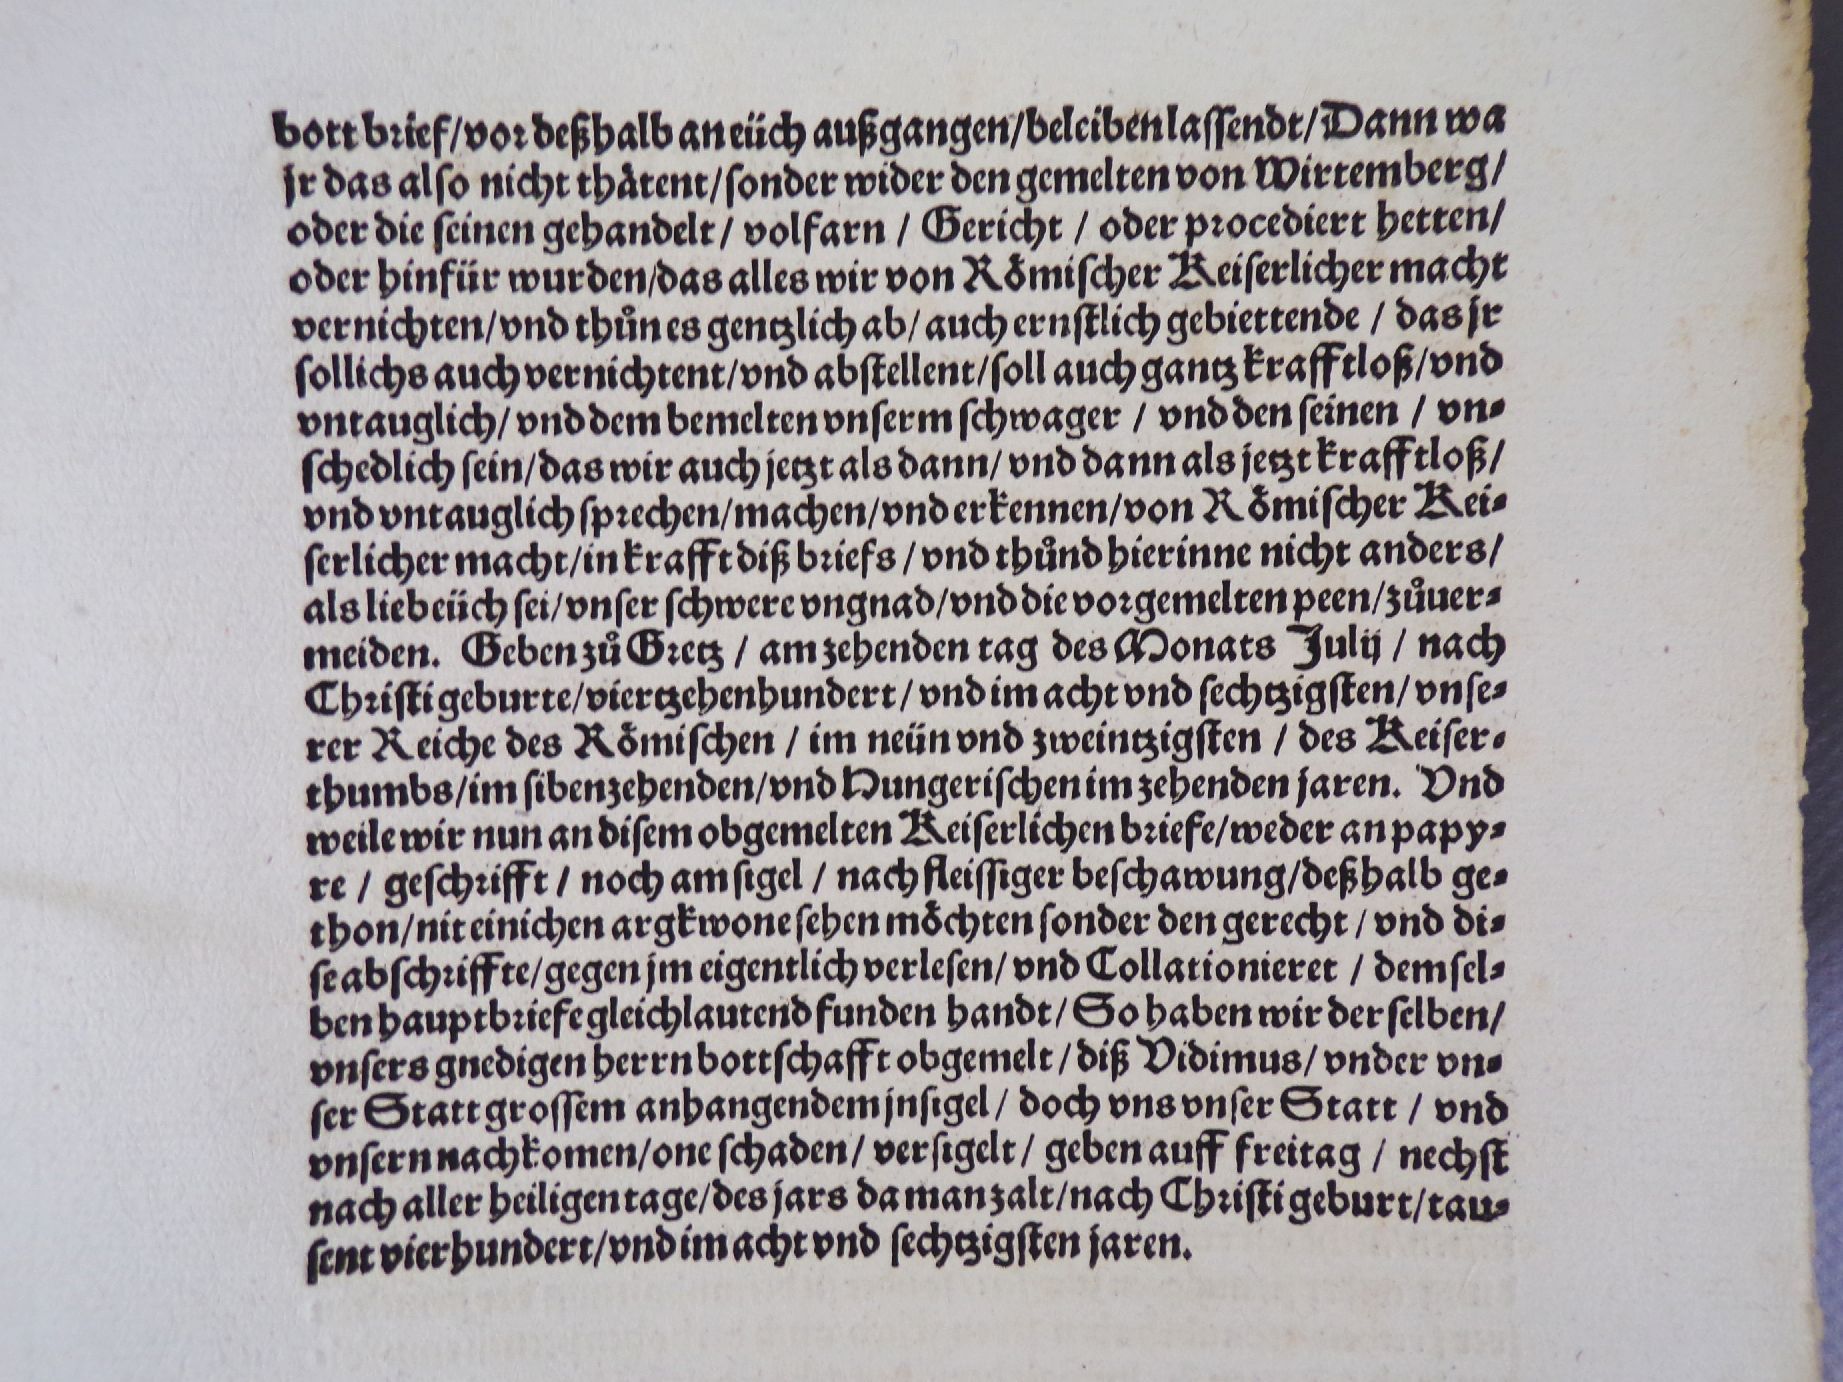 bott brief/vor deßhalb an eüch außgangen/beleiben lassendt/Dann wa
jr das also nicht thätent/sonder wider den gemelten von Wirtemberg/
oder die seinen gehandelt/ volfarn / Gericht / oder procediert hetten/
oder hinfür wurden/das alles wir von Römischer Keiserlicher macht
vernichten/vnd thůn es gentzlich ab/auch ernstlich gebiettende / das jr
sollichs auch vernichtent/vnd abstellent/soll auch gantz krafftloß/vnd
vntauglich/vnd dem bemelten vnserm schwager / vnd den seinen / vn-
schedlich sein/das wir auch jetzt als dann/ vnd dann als jetzt krafftloß/
vnd vntauglich sprechen/machen/vnd erkennen/von Römischer Kei-
serlicher macht/in krafft diß briefs / vnd thůnd hierinne nicht anders/
als lieb eüch sei/vnser schwere vngnad/vnd die vorgemelten peen/zůuer-
meiden. Geben zů Gretz / am zehenden tag des Monats Julij / nach
Christi geburte/viertzehenhundert/ vnd im acht vnd sechtzigsten/ vnse-
rer Reiche des Römischen / im neün vnd zweintzigsten / des Keiser-
thumbs/im sibenzehenden/vnd Hungerischen im zehenden jaren. Vnd
weile wir nun an disem obgemelten Keiserlichen briefe/weder an papy-
re / geschrifft / noch am sigel / nach fleissiger beschawung/deßhalb ge-
thon/nit einichen argkwone sehen möchten sonder den gerecht / vnd di-
se abschriffte/gegen jm eigentlich verlesen/ vnd Collationieret / dem sel-
ben hauptbriefe gleichlautend funden handt/ So haben wir der selben/
vnsers gnedigen herrn bottschafft obgemelt / diß Vidimus/ vnder vn-
ser Statt grossem anhangendem jnsigel/ doch vns vnser Statt / vnd
vnsern nachkomen/one schaden/ versigelt / geben auff freitag / nechst
nach aller heiligen tage/des jars da man zalt/nach Christi geburt/tau-
sent vierhundert/vnd im acht vnd sechtzigsten jaren.